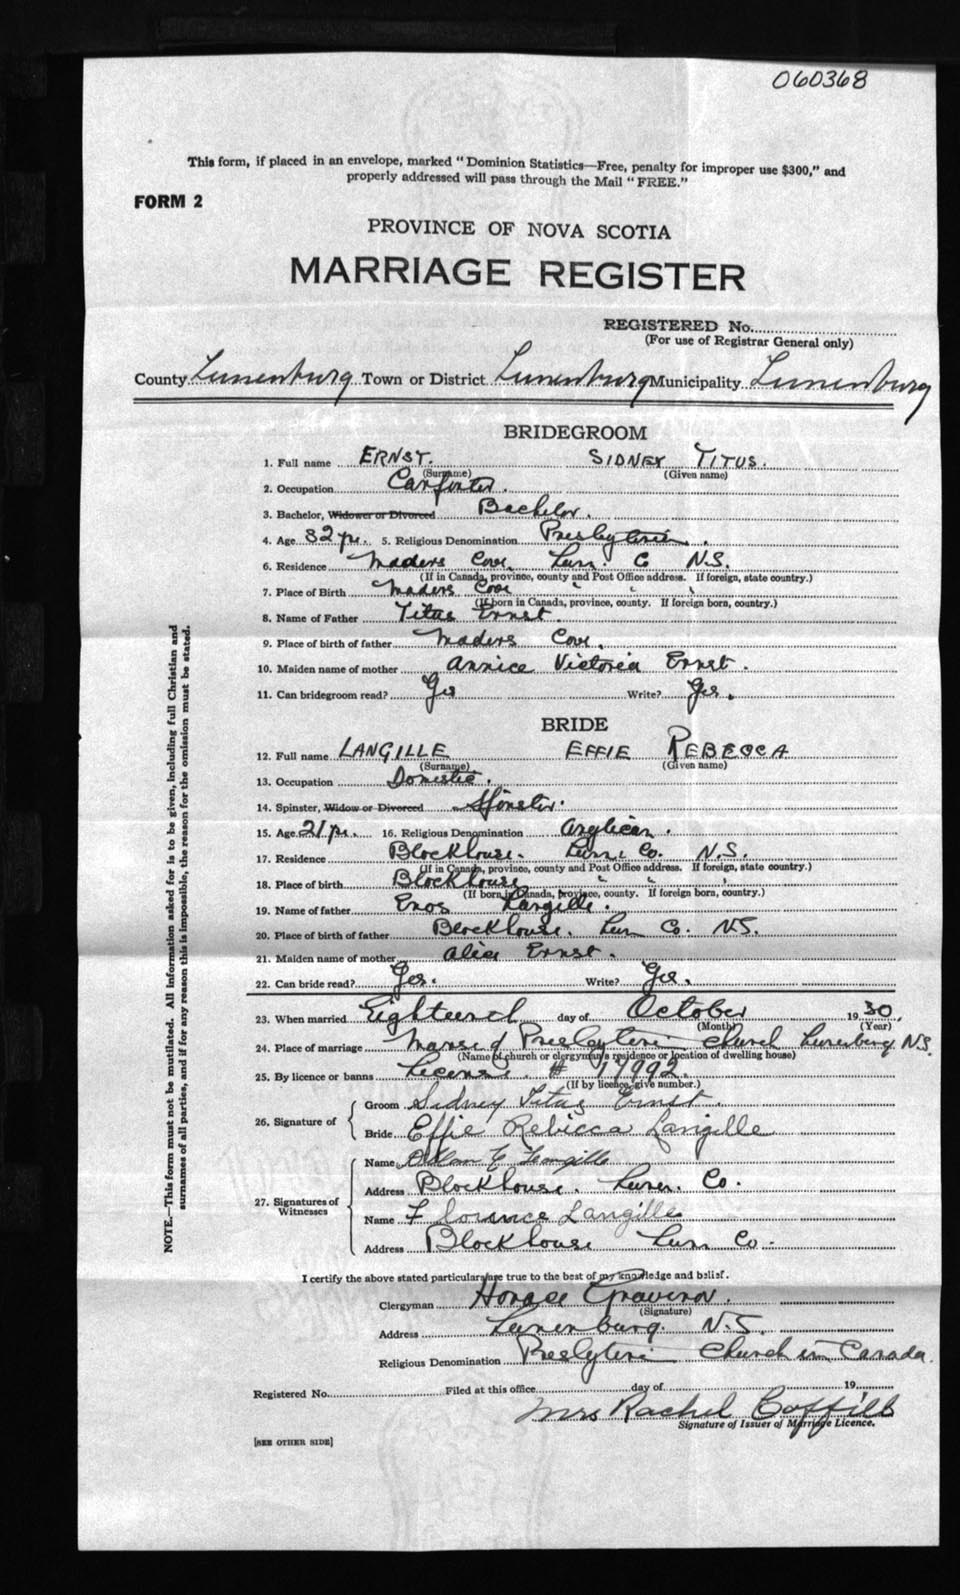 060368
This form, if placed in an envelope, marked "Dominion Statistics—Free, penalty for improper use $300," and
properly addressed will pass through the Mail "FREE."
FORM 2
PROVINCE OF NOVA SCOTIA
MARRIAGE REGISTER
REGISTERED No.
(For use of Registrar General only)
County Lunenburg Town or District Lunenburg Municipality Lunenburg
BRIDEGROOM
1. Full name ERNST. SIDNEY TITUS.
(Surname) (Given name)
2. Occupation Carpenter.
3. Bachelor, Widower or Divorced Bachelor.
4. Age 32 yr. 5. Religious Denomination Presbyterian.
6. Residence Maders Cove Lun. Co N.S.
(If in Canada, province, county and Post Office address. If foreign, state country.)
7. Place of Birth Maders Cove " " "
(If born in Canada, province, county. If foreign born, country.)
8. Name of Father Titus Ernst.
9. Place of birth of father Maders Cove.
10. Maiden name of mother Annice Victoria Ernst.
11. Can bridegroom read? Yes Write? Yes.
BRIDE
12. Full name LANGILLE EFFIE REBECCA
(Surname) (Given name)
13. Occupation Domestic.
14. Spinster, Widow or Divorced Spinster.
15. Age 21 yr. 16. Religious Denomination Anglican.
17. Residence Blockhouse. Lun. Co. N.S.
(If in Canada, province, county and Post Office address. If foreign, state country.)
18. Place of birth Blockhouse " " "
(If born in Canada, province, county. If foreign born, country.)
19. Name of father Enos Langille.
20. Place of birth of father Blockhouse. Lun Co. N.S.
21. Maiden name of mother Alice Ernst.
22. Can bride read? Yes. Write? Yes.
23. When married Eighteenth day of October 1930.
(Month) (Year)
24. Place of marriage Manse of Presbyterian Church Lunenburg N.S.
(Name of church or clergyman's residence or location of dwelling house)
25. By licence or banns License. # 17992.
(If by licence, give number.)
26. Signature of
Groom Sidney Titus Ernst.
Bride Effie Rebicca Langille
27. Signatures of Witnesses
Name Langille
Address Blockhouse. Lunen. Co.
Name Florence Langille
Address Blockhouse Lun Co.
I certify the above stated particulars are true to the best of my knowledge and belief.
Clergyman Horace
(Signature)
Address Lunenburg. N.S.
Religious Denomination Presbyterian Church in Canada.
Registered No. Filed at this office day of 19
Mrs Rachel
Signature of Issuer of Marriage Licence.
[SEE OTHER SIDE]
NOTE.—This form must not be mutilated. All information asked for is to be given, including full Christian and
surnames of all parties, and if for any reason this is impossible, the reason for the omission must be stated.